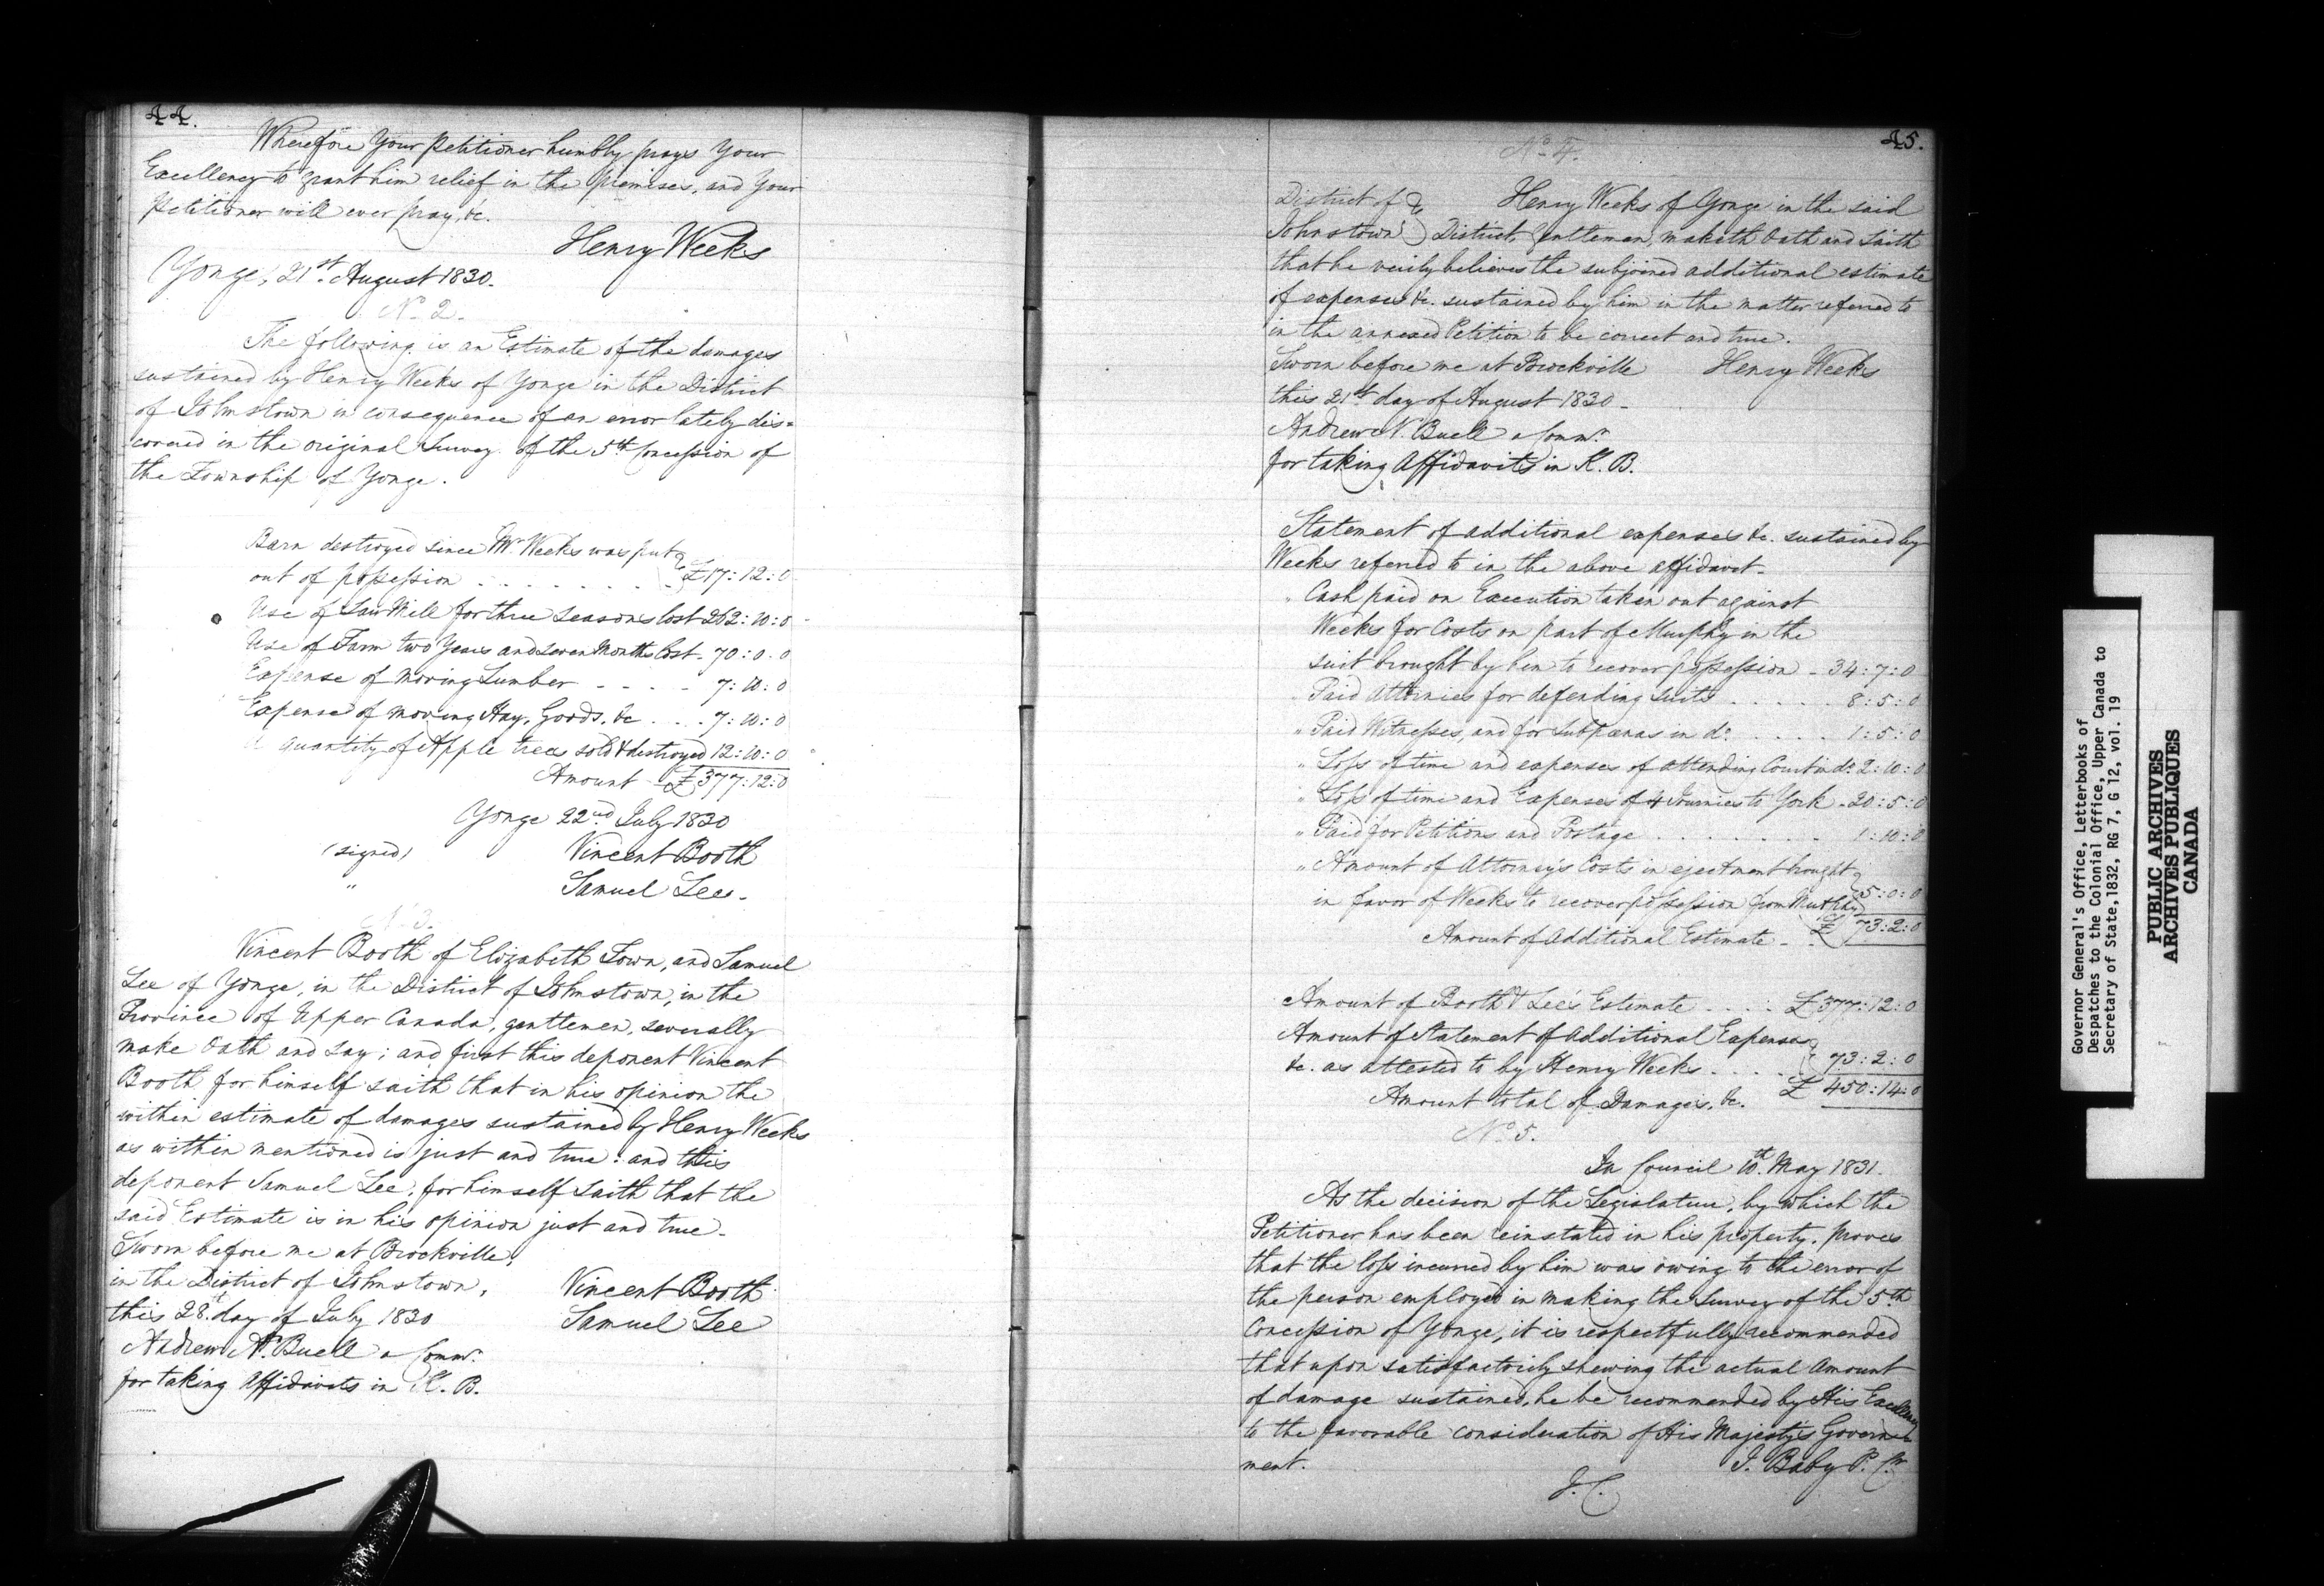 44.
Wherefore Your Petitioner humbly prays Your
Excellency to grant him relief in the premises, and Your
Petitioner will ever pray, &c.
Henry Weeks
Yonge, 21st August 1830.
No 2.
The following is an Estimate of the damages
sustained by Henry Weeks of Yonge in the District
of Johnstown in consequence of an error lately dis=
covered in the original Survey of the 5th Concession of
the Township of Yonge.
Barn destroyed since Mr Weeks was put
out of possession . . . . . . . £17:12:0
Use of Saw Mill for three Seasons lost 262:10:0
Use of Farm two Years and seven Months lost - 70:0:0
Expense of moving Lumber - - - - 7:10:0
Expense of moving Hay, Goods, &c . . . . 7:10:0
A quantity of Apple trees sold & destroyed 12:10:0
Amount - £377:12:0
Yonge 22nd July 1830
(signed) Vincent Booth
" Samuel Lee -
No 3.
Vincent Booth of Elizabeth Town, and Samuel
Lee of Yonge, in the District of Johnstown, in the
Province of Upper Canada, gentlemen, severally
make Oath and say; and first this deponent Vincent
Booth for himself saith that in his opinion the
within estimate of damages sustained by Henry Weeks
as within mentioned is just and true: and this
deponent Samuel Lee, for himself saith that the
said Estimate is in his opinion just and true -
Sworn before me at Brockville,
in the District of Johnstown, Vincent Booth
this 28th day of July 1830 Samuel Lee
Andrew N. Buell a Commr.
for taking Affidavits in K. B.
45.
No 4.
District of } Henry Weeks of Yonge in the said
Johnstown } District, Gentleman, maketh Oath and Saith
that he verily believes the subjoined additional estimate
of expenses &c. sustained by him in the matter referred to
in the annexed Petition to be correct and true.
Sworn before me at Brockville Henry Weeks
this 21st day of August 1830 -
Andrew N. Buell a Commr.
for taking Affidavits in K. B.
Statement of additional expenses &c. sustained by
Weeks referred to in the above affidavit -
" Cash paid on Execution taken out against
Weeks for Costs on part of Murphy in the
suit brought by him to recover possession - 34:7:0
" Paid Attornies for defending suits . . . . . 8:5:0
" Paid Witnesses, and for Subpœnas in do. . . . . 1:5:0
" Loss of time and expenses of attending Court in do. 2:10:0
" Loss of time and Expenses of 4 Journies to York - 20:5:0
" Paid for Petitions and Postage . . . . . . . . 1:10:0
" Amount of Attorney's Costs in ejectment brought
in favor of Weeks to recover possession from Murphy } 5:0:0
Amount of Additional Estimate - £ 73:2:0
Amount of Booth & Lee's Estimate . . . . £377:12:0
Amount of Statement of Additional Expenses
&c. as attested to by Henry Weeks . . . . . 73:2:0
Amount total of Damages, &c. £ 450:14:0
No 5.
In Council 10th May 1831.
As the decision of the Legislature, by which the
Petitioner has been reinstated in his property, proves
that the loss incurred by him was owing to the error of
the person employed in making the Survey of the 5th
Concession of Yonge, it is respectfully recommended
that upon satisfactorily shewing the actual Amount
of damage sustained, he be recommended by His Excellency
to the favorable consideration of His Majesty's Govern
ment. J. Baby P. Cr.
J. C.
Governor General's Office, Letterbooks of
Despatches to the Colonial Office, Upper Canada to
Secretary of State, 1832, RG 7, G 12, vol. 19
PUBLIC ARCHIVES
ARCHIVES PUBLIQUES
CANADA